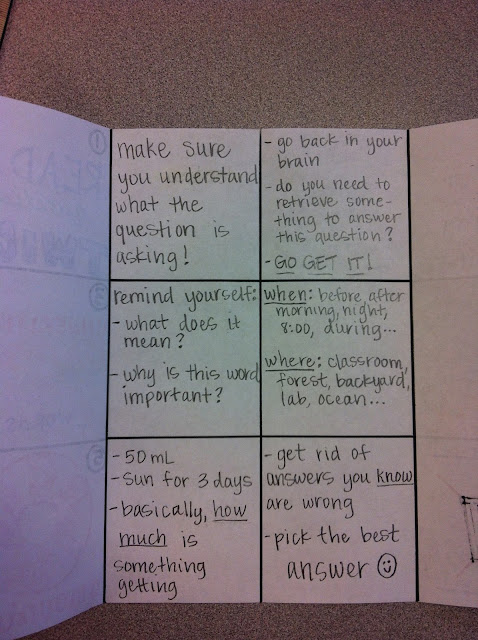 make sure
you understand
what the
question is
asking!
- go back in your
brain
- do you need to
retrieve some-
thing to answer
this question?
- GO GET IT!
remind yourself:
- what does it
mean?
- why is this word
important?
when: before, after
morning, night,
8:00, during...
where: classroom,
forest, backyard,
lab, ocean...
- 50 mL
- Sun for 3 days
- basically, how
much is
something
getting
- get rid of
answers you know
are wrong
- pick the best
answer